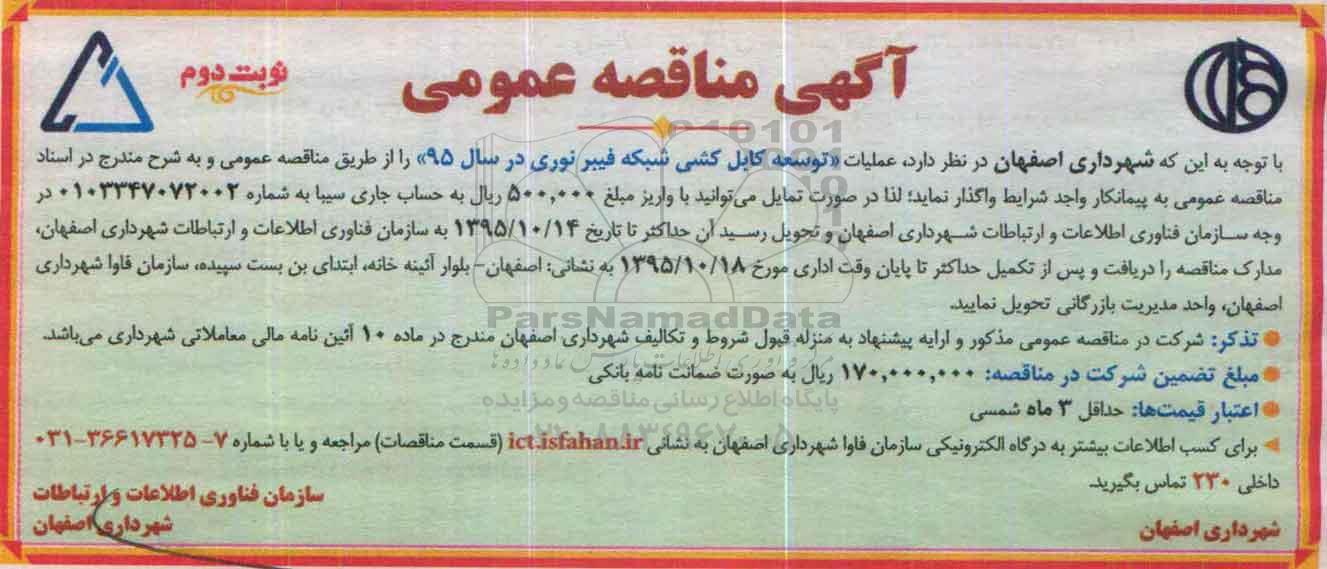 آگهی مناقصه عمومی
نوبت دوم
با توجه به این که شهرداری اصفهان در نظر دارد، عملیات «توسعه کابل کشی شبکه فیبر نوری در سال ۹۵» را از طریق مناقصه عمومی و به شرح مندرج در اسناد
مناقصه عمومی به پیمانکار واجد شرایط واگذار نماید؛ لذا در صورت تمایل می‌توانید با واریز مبلغ ۵۰۰,۰۰۰ ریال به حساب جاری سیبا به شماره ۰۱۰۳۳۴۷۰۷۲۰۰۲ در
وجه سازمان فناوری اطلاعات و ارتباطات شهرداری اصفهان و تحویل رسید آن حداکثر تا تاریخ ۱۳۹۵/۱۰/۱۴ به سازمان فناوری اطلاعات و ارتباطات شهرداری اصفهان،
مدارک مناقصه را دریافت و پس از تکمیل حداکثر تا پایان وقت اداری مورخ ۱۳۹۵/۱۰/۱۸ به نشانی: اصفهان- بلوار آئینه خانه، ابتدای بن بست سپیده، سازمان فاوا شهرداری
اصفهان، واحد مدیریت بازرگانی تحویل نمایید.
تذکر: شرکت در مناقصه عمومی مذکور و ارایه پیشنهاد به منزله قبول شروط و تکالیف شهرداری اصفهان مندرج در ماده ۱۰ آئین نامه مالی معاملاتی شهرداری می‌باشد.
مبلغ تضمین شرکت در مناقصه: ۱۷۰,۰۰۰,۰۰۰ ریال به صورت ضمانت نامه بانکی
اعتبار قیمت‌ها: حداقل ۳ ماه شمسی
برای کسب اطلاعات بیشتر به درگاه الکترونیکی سازمان فاوا شهرداری اصفهان به نشانی ict.isfahan.ir (قسمت مناقصات) مراجعه و یا با شماره ۷-۳۶۶۱۷۳۲۵-۰۳۱
داخلی ۲۳۰ تماس بگیرید.
شهرداری اصفهان
سازمان فناوری اطلاعات و ارتباطات
شهرداری اصفهان
ParsNamadData
پایگاه اطلاع رسانی مناقصه و مزایده